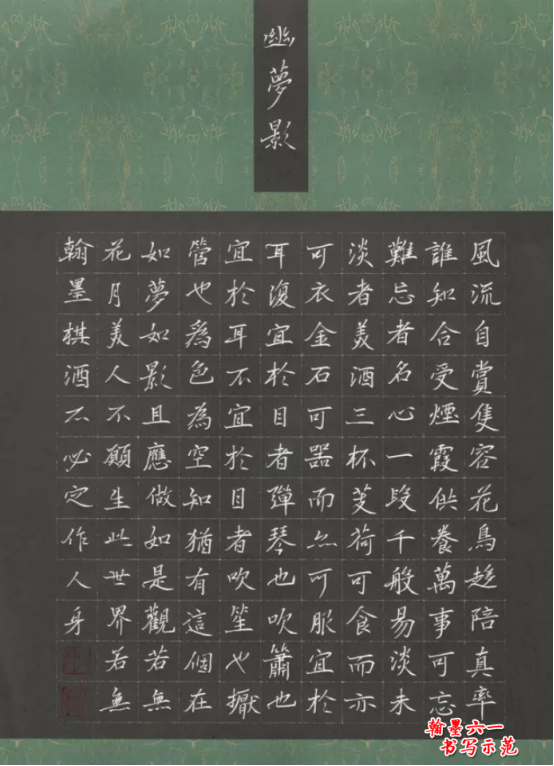 幽夢影
風流自賞隻容花鳥趍陪真率
誰知合受煙霞供養萬事可忘
難忘者名心一段千般易淡未
淡者美酒三杯芰荷可食而亦
可衣金石可器而亦可服宜於
耳復宜於目者彈琴也吹簫也
宜於耳不宜於目者吹笙也擫
管也爲色為空知猶有這個在
如夢如影且應做如是觀若無
花月美人不願生此世界若無
翰墨棋酒不必定作人身
翰墨六一
书写示范